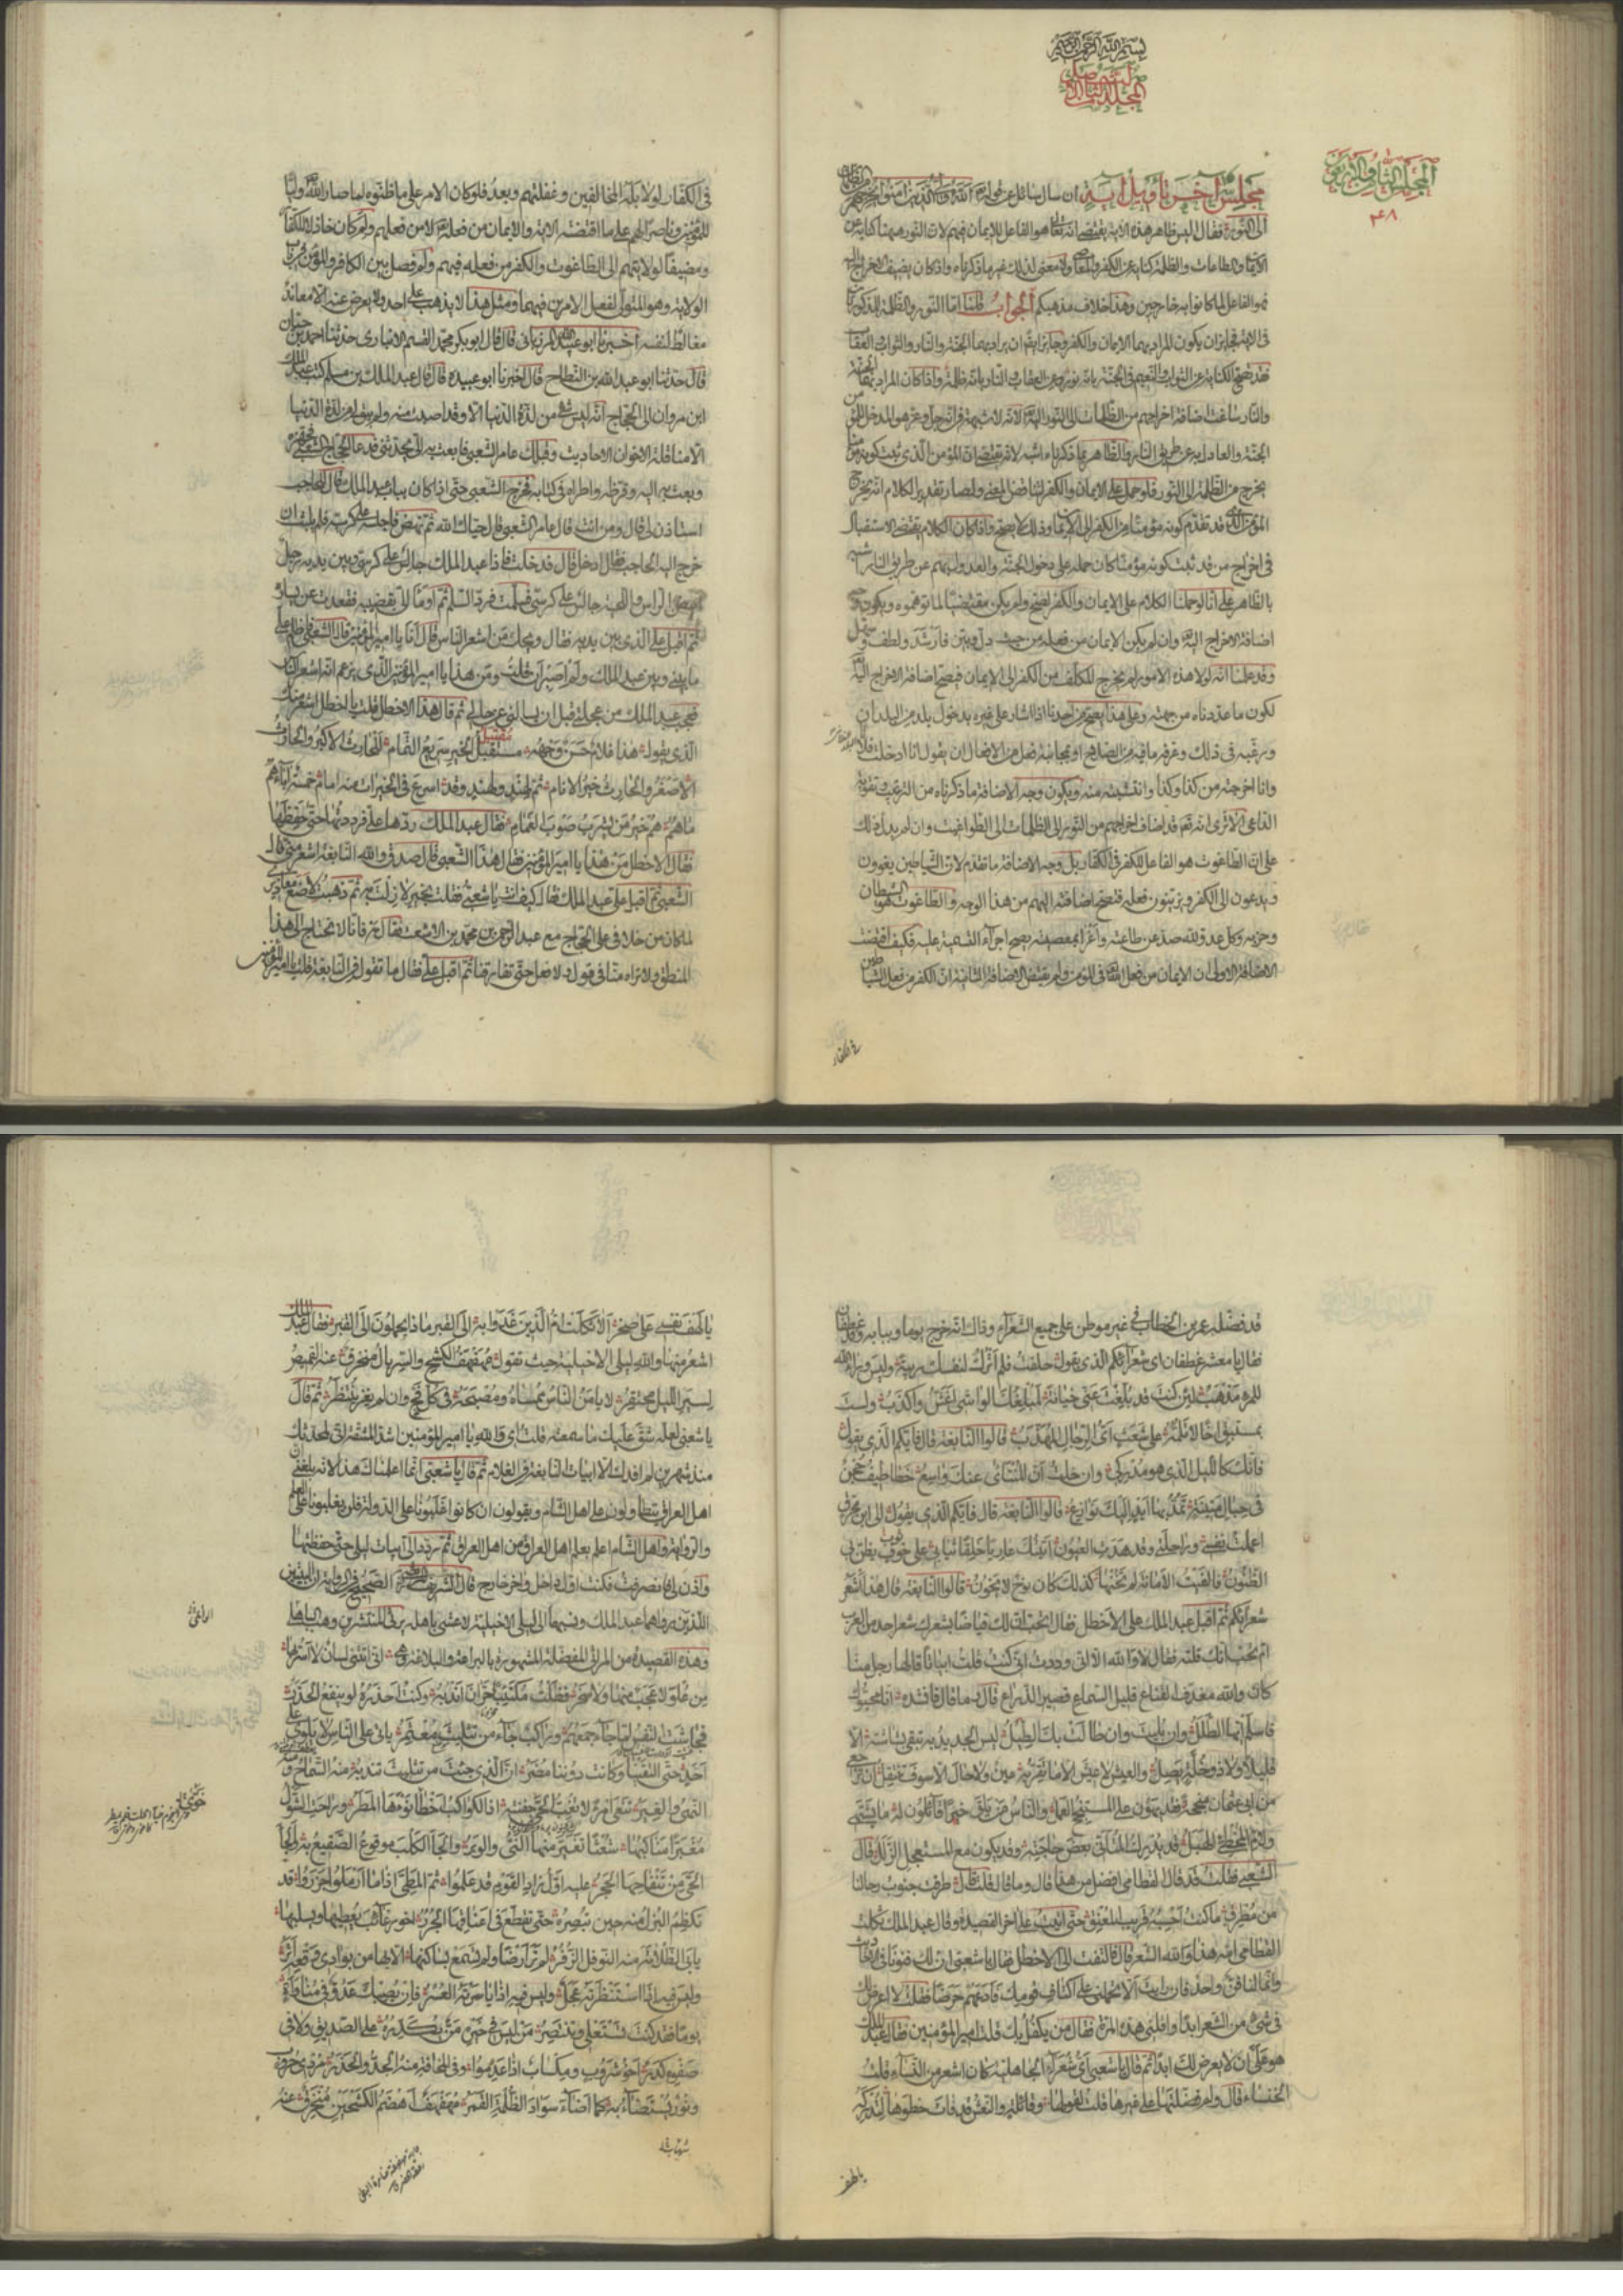 بسم الله الرحمن الرحيم
المجلد الثاني
المجلس الثاني والاربعون
٢٤٨
مجلس آخر تأويل آية ان سال سائل عن قوله تعالى الله ولي الذين آمنوا يخرجهم من الظلمات
الى النور فقال اليس ظاهر هذه الاية يقتضي انه تعالى هو الفاعل للايمان فيهم لان النور ههنا كناية عن
الايمان والطاعات والظلمة كناية عن الكفر والمعاصي ولا معنى لذلك غير ما ذكرناه واذا كان يضيف الاخراج اليه
فهو الفاعل لما كانوا به خارجين وهذا خلاف مذهبكم الجواب قلنا اما النور والظلمة المذكوران
في الاية فجايز ان يكون المراد بهما الايمان والكفر وجايز ايضا ان يراد بهما الجنة والنار والثواب والعقاب
فقد تصح الكناية عن الثواب والنعيم في الجنة بانه نور وعن العقاب في النار بانه ظلمة واذا كان المراد بهما الجنة
والنار ساغت اضافة اخراجهم من الظلمات الى النور اليه تعالى لانه لا شبهة في انه جل وعز هو المدخل للمؤمن
الجنة والعادل به عن طريق النار والظاهر بما ذكرناه اشبه لانه يقتضي ان المؤمن الذي ثبت كونه مؤمنا
يخرج من الظلمة الى النور فلو حمل على الايمان والكفر لتناقض المعنى ولصار تقدير الكلام انه يخرج
المؤمن الذي قد تقدم كونه مؤمنا من الكفر الى الايمان وذلك لا يصح واذا كان الكلام يقتضي الاستقبال
في اخراج من قد ثبت كونه مؤمنا كان حمله على دخول الجنة والعدول بهم عن طريق النار اشبه
بالظاهر على انا لو حملنا الكلام على الايمان والكفر لصح ولم يكن مقتضيا لما توهموه ويكون وجه
اضافة الاخراج اليه وان لم يكن الايمان من فعله من حيث دل وبين وارشد ولطف وسهل
وقد علمنا انه لولا هذه الامور لم يخرج المكلف من الكفر الى الايمان فيصح اضافة الاخراج اليه تعالى
لكون ما عددناه من جهته وعلى هذا يصح من احدنا اذا اشار على غيره بدخول بلد من البلدان
ورغبه في ذلك وعرفه ما فيه من الصلاح او بمجانبة فعل من الافعال ان يقول انا ادخلت فلانا
وانا اخرجته من كذا وكذا وانتشته منه ويكون وجه الاضافة ما ذكرناه من الترغيب وتقوية
الدواعي الا ترى انه تعالى قد اضاف اخراجهم من النور الى الظلمات الى الطواغيت وان لم يدل ذلك
على ان الطاغوت هو الفاعل للكفر في الكفار بل وجه الاضافة ما تقدم لان الشياطين يغوون
ويدعون الى الكفر ويزينون فعله فتصح اضافته اليهم من هذا الوجه والطاغوت هو الشيطان
وحزبه وكل عدو لله صد عن طاعته واغرا بمعصيته يصح اجراء التسمية عليه فكيف اقتضت
الاضافة الاولى ان الايمان من فعل الله تعالى في المؤمن ولم يقتض الاضافة الثانية ان الكفر من فعل الشياطين
في الكفار
في الكفار لولا بله المخالفين وغفلتهم وبعد فلو كان الامر على ما ظنوه لما صار الله وليا
للمؤمنين وناصرا لهم على ما اقتضته الاية والايمان من فعله تعالى لا من فعلهم ولم كان خاذلا للكفار
ومضيفا لولايتهم الى الطاغوت والكفر من فعله فيهم ولم فصل بين الكافر والمؤمن في باب
الولاية وهو المتولي لفعل الامرين فيهما ومثل هذا لا يذهب على احد ولا يعرض عنه الا معاند
مغالط لنفسه اخبرنا ابو عبيد الله المرزباني قال قال ابو بكر محمد القسم الانباري حدثنا احمد بن حيان
قال حدثنا ابو عبد الله بن النطاح قال اخبرنا ابو عبيدة قال قال عبد الملك بن مسلم كتب عبد الملك
ابن مروان الى الحجاج انه ليس شيء من لذة الدنيا الا وقد اصبت منه ولم يبق لي من لذة الدنيا
الا مناقلة الاخوان الاحاديث وقبلك عامر الشعبي فابعث به الي يحدثني فدعا الحجاج الشعبي فجهزه
وبعث به اليه وقرظه واطراه في كتابه فخرج الشعبي حتى اذا كان بباب عبد الملك فقال للحاجب
استاذن لي قال ومن انت قال عامر الشعبي قال حياك الله ثم نهض فاجلسه على كرسيه فلم يلبث ان
خرج اليه الحاجب فقال ادخل قال فدخلت فاذا عبد الملك جالس على كرسي وبين يديه رجل
ابيض الراس واللحية جالس على كرسي فسلمت فرد السلم ثم اومأ الي بقضيبه فقعدت عن يساره
ثم اقبل على الذي بين يديه فقال ويحك من اشعر الناس قال انا يا امير المؤمنين قال الشعبي فاظلم علي
ما بيني وبين عبد الملك ولم اصبر ان قلت ومن هذا يا امير المؤمنين الذي يزعم انه اشعر الناس
فعجب عبد الملك من عجلتي قبل ان يسالني عن حالي ثم قال هذا الاخطل قلت يا اخطل اشعر منك
الذي يقول هذا غلام حسن وجهه مستقبل الخير سريع التمام للحارث الاكبر والحارث
الاصغر والحارث خير الانام ثم لهند ولهند وقد اسرع في الخيرات منه امام خمسة آباءهم
ما هم هم خير من يشرب صوب الغمام فقال عبد الملك ردها علي فرددتها حتى حفظها
فقال الاخطل من هذا يا امير المؤمنين فقال هذا الشعبي قال صدق والله النابغة اشعر مني قال
الشعبي ثم اقبل علي عبد الملك فقال كيف انت يا شعبي فقلت بخير لا زلت به ثم ذهبت لاضع معاذير
لما كان من خلافي على الحجاج مع عبد الرحمن بن محمد بن الاشعث فقال مه فانا لا نحتاج الى هذا
المنطق ولا تراه منا في قول ولا فعل حتى تفارقنا ثم اقبل علي فقال ما تقول في النابغة قلت يا امير المؤمنين
قد فضله عمر بن الخطاب في غير موطن على جميع الشعراء وذاك انه خرج يوما وببابه وفد غطفان
فقال يا معشر غطفان اي شعرائكم الذي يقول حلفت فلم اترك لنفسك ريبة وليس وراء الله
للمرء مذهب لئن كنت قد بلغت عني خيانة لمبلغك الواشي اغش واكذب ولست
بمستبق اخا لا تلمه على شعث اي الرجال المهذب قالوا النابغة قال فايكم الذي يقول
فانك كالليل الذي هو مدركي وان خلت ان المنتأى عنك واسع خطاطيف حجن
في حبال متينة تمد بها ايد اليك نوازع قالوا النابغة قال فايكم الذي يقول الى ابن محرق
اعملت نفسي وراحلتي وقد هدت العيون اتيتك عاريا خلقا ثيابي على خوف يظن بي
الظنون فالفيت الامانة لم تخنها كذلك كان نوح لا يخون قالوا النابغة قال هذا اشعر
شعرائكم ثم اقبل عبد الملك على الاخطل فقال اتحب ان لك قياضا بشعرك شعر احد من العرب
ام تحب انك قلته فقال لا والله الا اني وددت اني كنت قلت ابياتا قالها رجل منا
كان والله مغدف القناع قليل السماع قصير الذراع قال وما قال فانشده انا محيوك
فاسلم ايها الطلل وان بليت وان طالت بك الطيل ليس الجديد به تبقى بشاشته الا
قليلا ولا ذو خلة يصل والعيش لا عيش الا ما تقر به عين ولا حال الا سوف تنتقل ان ترجعي
من ابي عثمان منجحة فقد يهون على المستنجح العمل والناس من يلق خيرا قائلون له ما يشتهي
ولام المخطئ الهبل قد يدرك المتأني بعض حاجته وقد يكون مع المستعجل الزلل قال
الشعبي فقلت قد قال القطامي افضل من هذا قال وما قال قلت قال طرقت جنوب رحالنا
من مطرق ما كنت احسبه قريب المعنق حتى اتيت على اخر القصيدة وقال عبد الملك ثكلت
القطامي امه هذا والله الشعر قال فالتفت الي الاخطل فقال يا شعبي ان لك فنونا في الاحاديث
وانما لنا فن واحد فان رايت الا تحملني على اكتاف قومك فادعهم حرضا فقلت لا اعرض لك
في شيء من الشعر ابدا فاقلني هذه المرة فقال من يكفل بك قلت امير المؤمنين فقال عبد الملك
هو علي ان لا يعرض لك ابدا ثم قال يا شعبي اي شعراء الجاهلية كان اشعر من النساء قلت
الخنساء قال ولم فضلتها على غيرها قلت لقولها وقائلة والنعش قد فات خطوها لتدركه
يا لهف
يا لهف نفسي على صخر الا ثكلت ام الذين غدوا به الى القبر ماذا يحملون الى القبر فقال عبد الملك
اشعر منها والله ليلى الاخيلية حيث تقول مهفهف الكشح والسربال منخرق عنه القميص
لسير الليل محتقر لا يامن الناس ممساه ومصبحه في كل فج وان لم يغز ينتظر ثم قال
يا شعبي لعله شق عليك ما سمعته قلت اي والله يا امير المؤمنين اشد المشقة اني لمحدثك
منذ شهرين لم افدك الا ابيات النابغة في الغلام ثم قال يا شعبي انما اعلمناك هذا لانه بلغني ان
اهل العراق يتطاولون على اهل الشام ويقولون ان كانوا غلبونا على الدولة فلن يغلبونا على العلم
والرواية واهل الشام اعلم بعلم اهل العراق من اهل العراق ثم ردد علي ابيات ليلى حتى حفظتها
واذن لي فانصرفت فكنت اول داخل واخر خارج قال الشريف المرتضى الصحيح في الرواية ان البيتين
اللذين رواهما عبد الملك ونسبهما الى ليلى الاخيلية لاعشى باهلة يرثي المنتشر بن وهب الباهلي
وهذه القصيدة من المراثي المفضلة المشهورة بالبراعة والبلاغة وهي اني اتتني لسان لا اسر بها
من علو لا عجب منها ولا سخر فظلت مكتئبا حران اندبه وكنت احذره لو ينفع الحذر
فجاشت النفس لما جاء جمعهم وراكب جاء من تثليث معتمر ياتي على الناس لا يلوي على
احد حتى التقينا وكانت دوننا مضر ان الذي جئت من تثليث تندبه منه السماح ومنه
النهي والغير تنعى امرأ لا تغب الحي جفنته اذا الكواكب اخطا نوءها المطر وراحت الشول
مغبرا مناكبها شعثا تغير منها الني والوبر والجأ الكلب موقوع الصقيع به والجأ
الحي من تنفاحها الحجر عليه اول زاد القوم قد علموا ثم المطي اذا ما ارملوا جزروا قد
تكظم البزل منه حين تبصره حتى تقطع في اعناقها الجرر اخو رغائب يعطيها ويسئلها
يابى الظلامة منه النوفل الزفر لم تر ارضا ولم تسمع بساكنها الا بها من بوادي وقعه اثر
وليس فيه اذا استنظرته عجل وليس فيه اذا ياسرته عسر فان يصبك عدو في مناوأة
يوما فقد كنت تستعلي وتنتصر من ليس في خيره من يكدره على الصديق ولا في
صفوه كدر اخو شروب ومكساب اذا عدموا وفي المخافة منه الجد والحذر مردى حروب
ونور يستضاء به كما اضاء سواد الظلمة القمر مهفهف اهضم الكشحين منخرق عنه